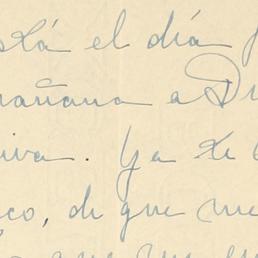 stá el día
mañana a Di
iva. Ya te
co, de que me
que me